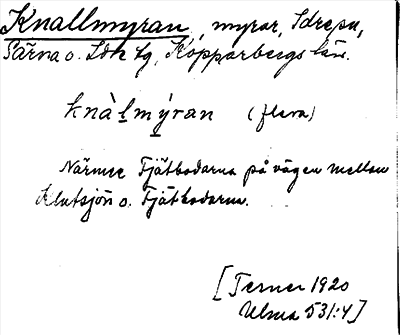 Knallmyran, myrar, Idre sn,
Särna o. Idre tg, Kopparbergs län.
knàlmýran (flera)
Närmre Fjätbodarna på vägen mellan
Klutsjön o. Fjätbodarna.
[Terner 1920
Ulma 531:4]